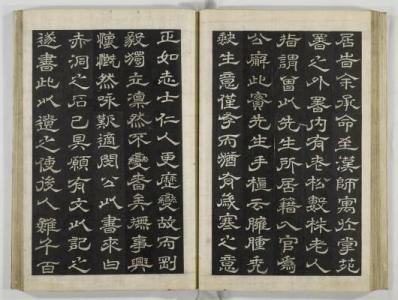 居昔余承命至漢師寓於掌苑
署之外署內有老松數株老人
指謂曾以先生所居籍入官為
公廨此實先生手植云臃腫禿
缺生意僅存而猶有歲寒之意
正如志士仁人更歷變故而剛
毅獨立凛然不變者矣撫事興
懷慨然咏歎適閔公以書來曰
赤洞之石已具願有文以記之
遂書此以遺之使後人雖千百